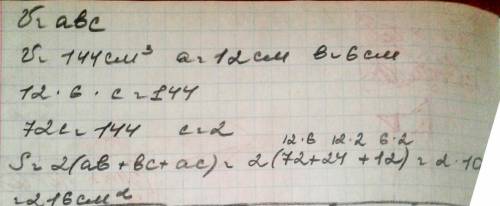 V = abc
V = 144 см³ a = 12 см в = 6 см
12 · 6 · c = 144
72c = 144 c = 2
12·6 12·2 6·2
S = 2(ab + bc + ac) = 2(72 + 24 + 12) = 2 · 10
= 216 см²